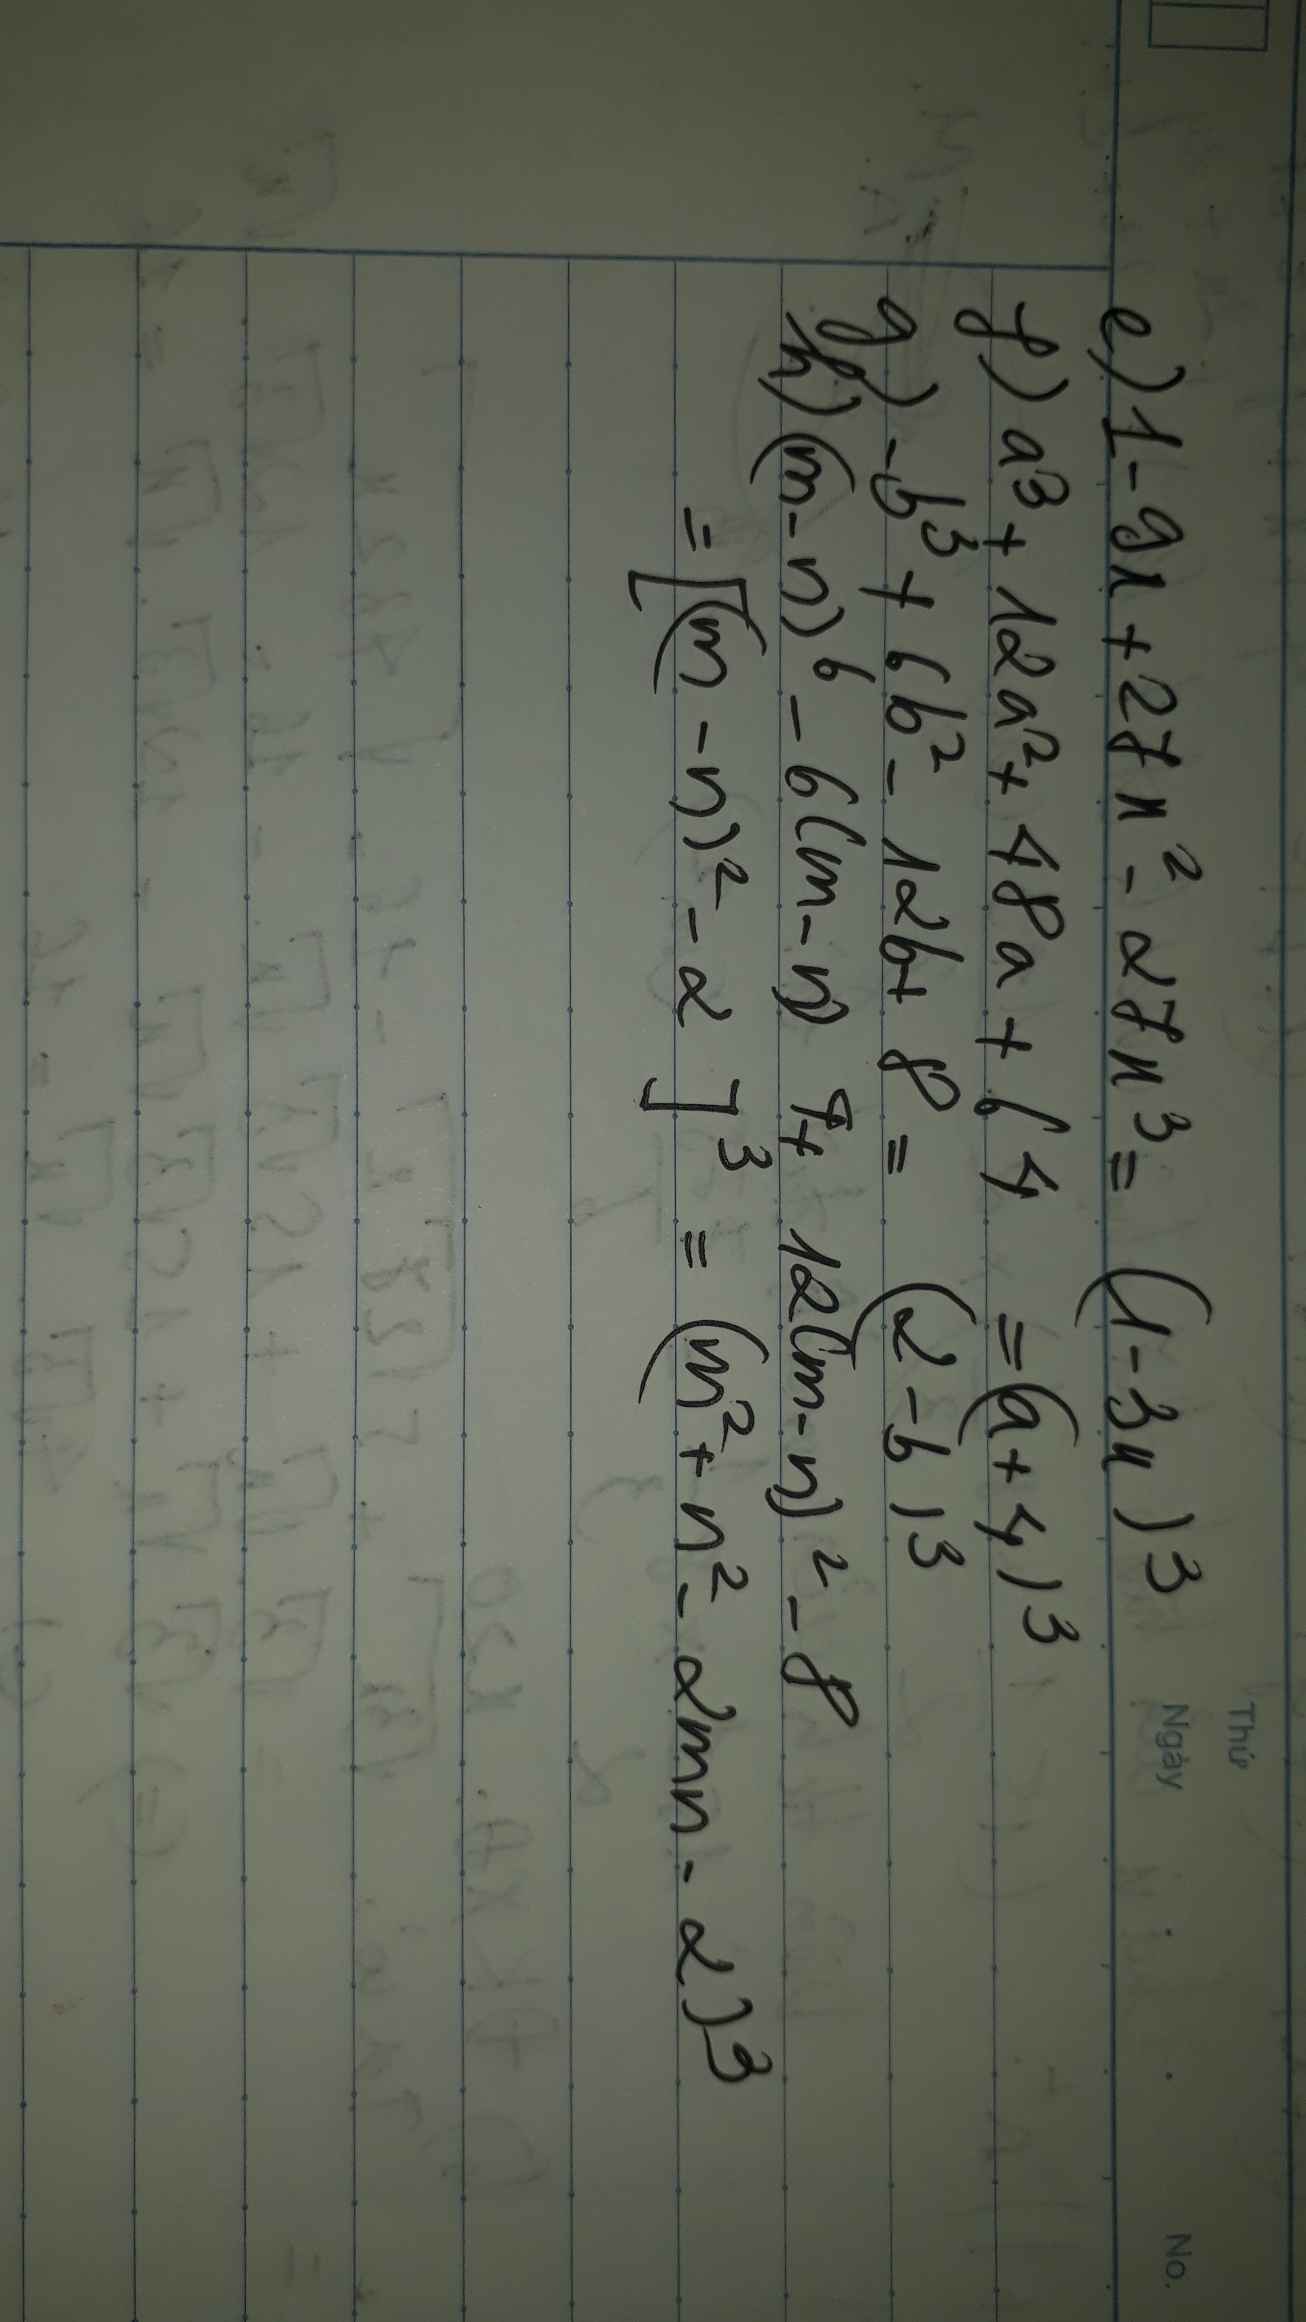 Thứ
Ngày No.
e) 1 - 9x + 27x² - 27x³ = (1 - 3x)³
f) a³ + 12a² + 48a + 64 = (a + 4)³
g) -b³ + 6b² - 12b + 8 = (2 - b)³
h) (m - n)⁶ - 6(m - n)⁴ + 12(m - n)² - 8
= [(m - n)² - 2]³ = (m² + n² - 2mn - 2)³